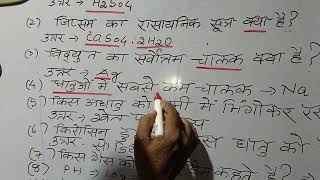 उत्तर → H2SO4
(2) जिप्सम का रासायनिक सूत्र क्या है?
उत्तर → CaSO4.2H2O
(3) विद्युत का सर्वोत्तम चालक क्या है?
उत्तर → Ag
(4) धातुओं में सबसे कम चालक → Na
(5) किस अधातु को में भिंगोकर
उत्तर →
(6) किरोसिन धातु को
(7) किस गैस को कहते हैं?
(8) PH →